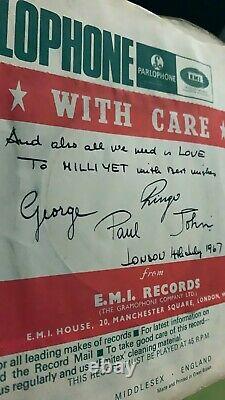 LOPHONE
PARLOPHONE
E.M.I.
WITH CARE
And also all we need is LOVE
To MILLIYET with Best wishes
George Ringo
Paul John
LONDON 1967
from
E.M.I. RECORDS
(THE GRAMOPHONE COMPANY LTD.)
E.M.I. HOUSE, 20, MANCHESTER SQUARE, LONDON, W
For all leading makes of records • For latest information on
and the Record Mail • To take good care of this record
us regularly and use Emitex cleaning material.
THIS RECORD MUST BE PLAYED AT 45 R.P.M
MIDDLESEX ENGLAND
Made and Printed in Great Britain